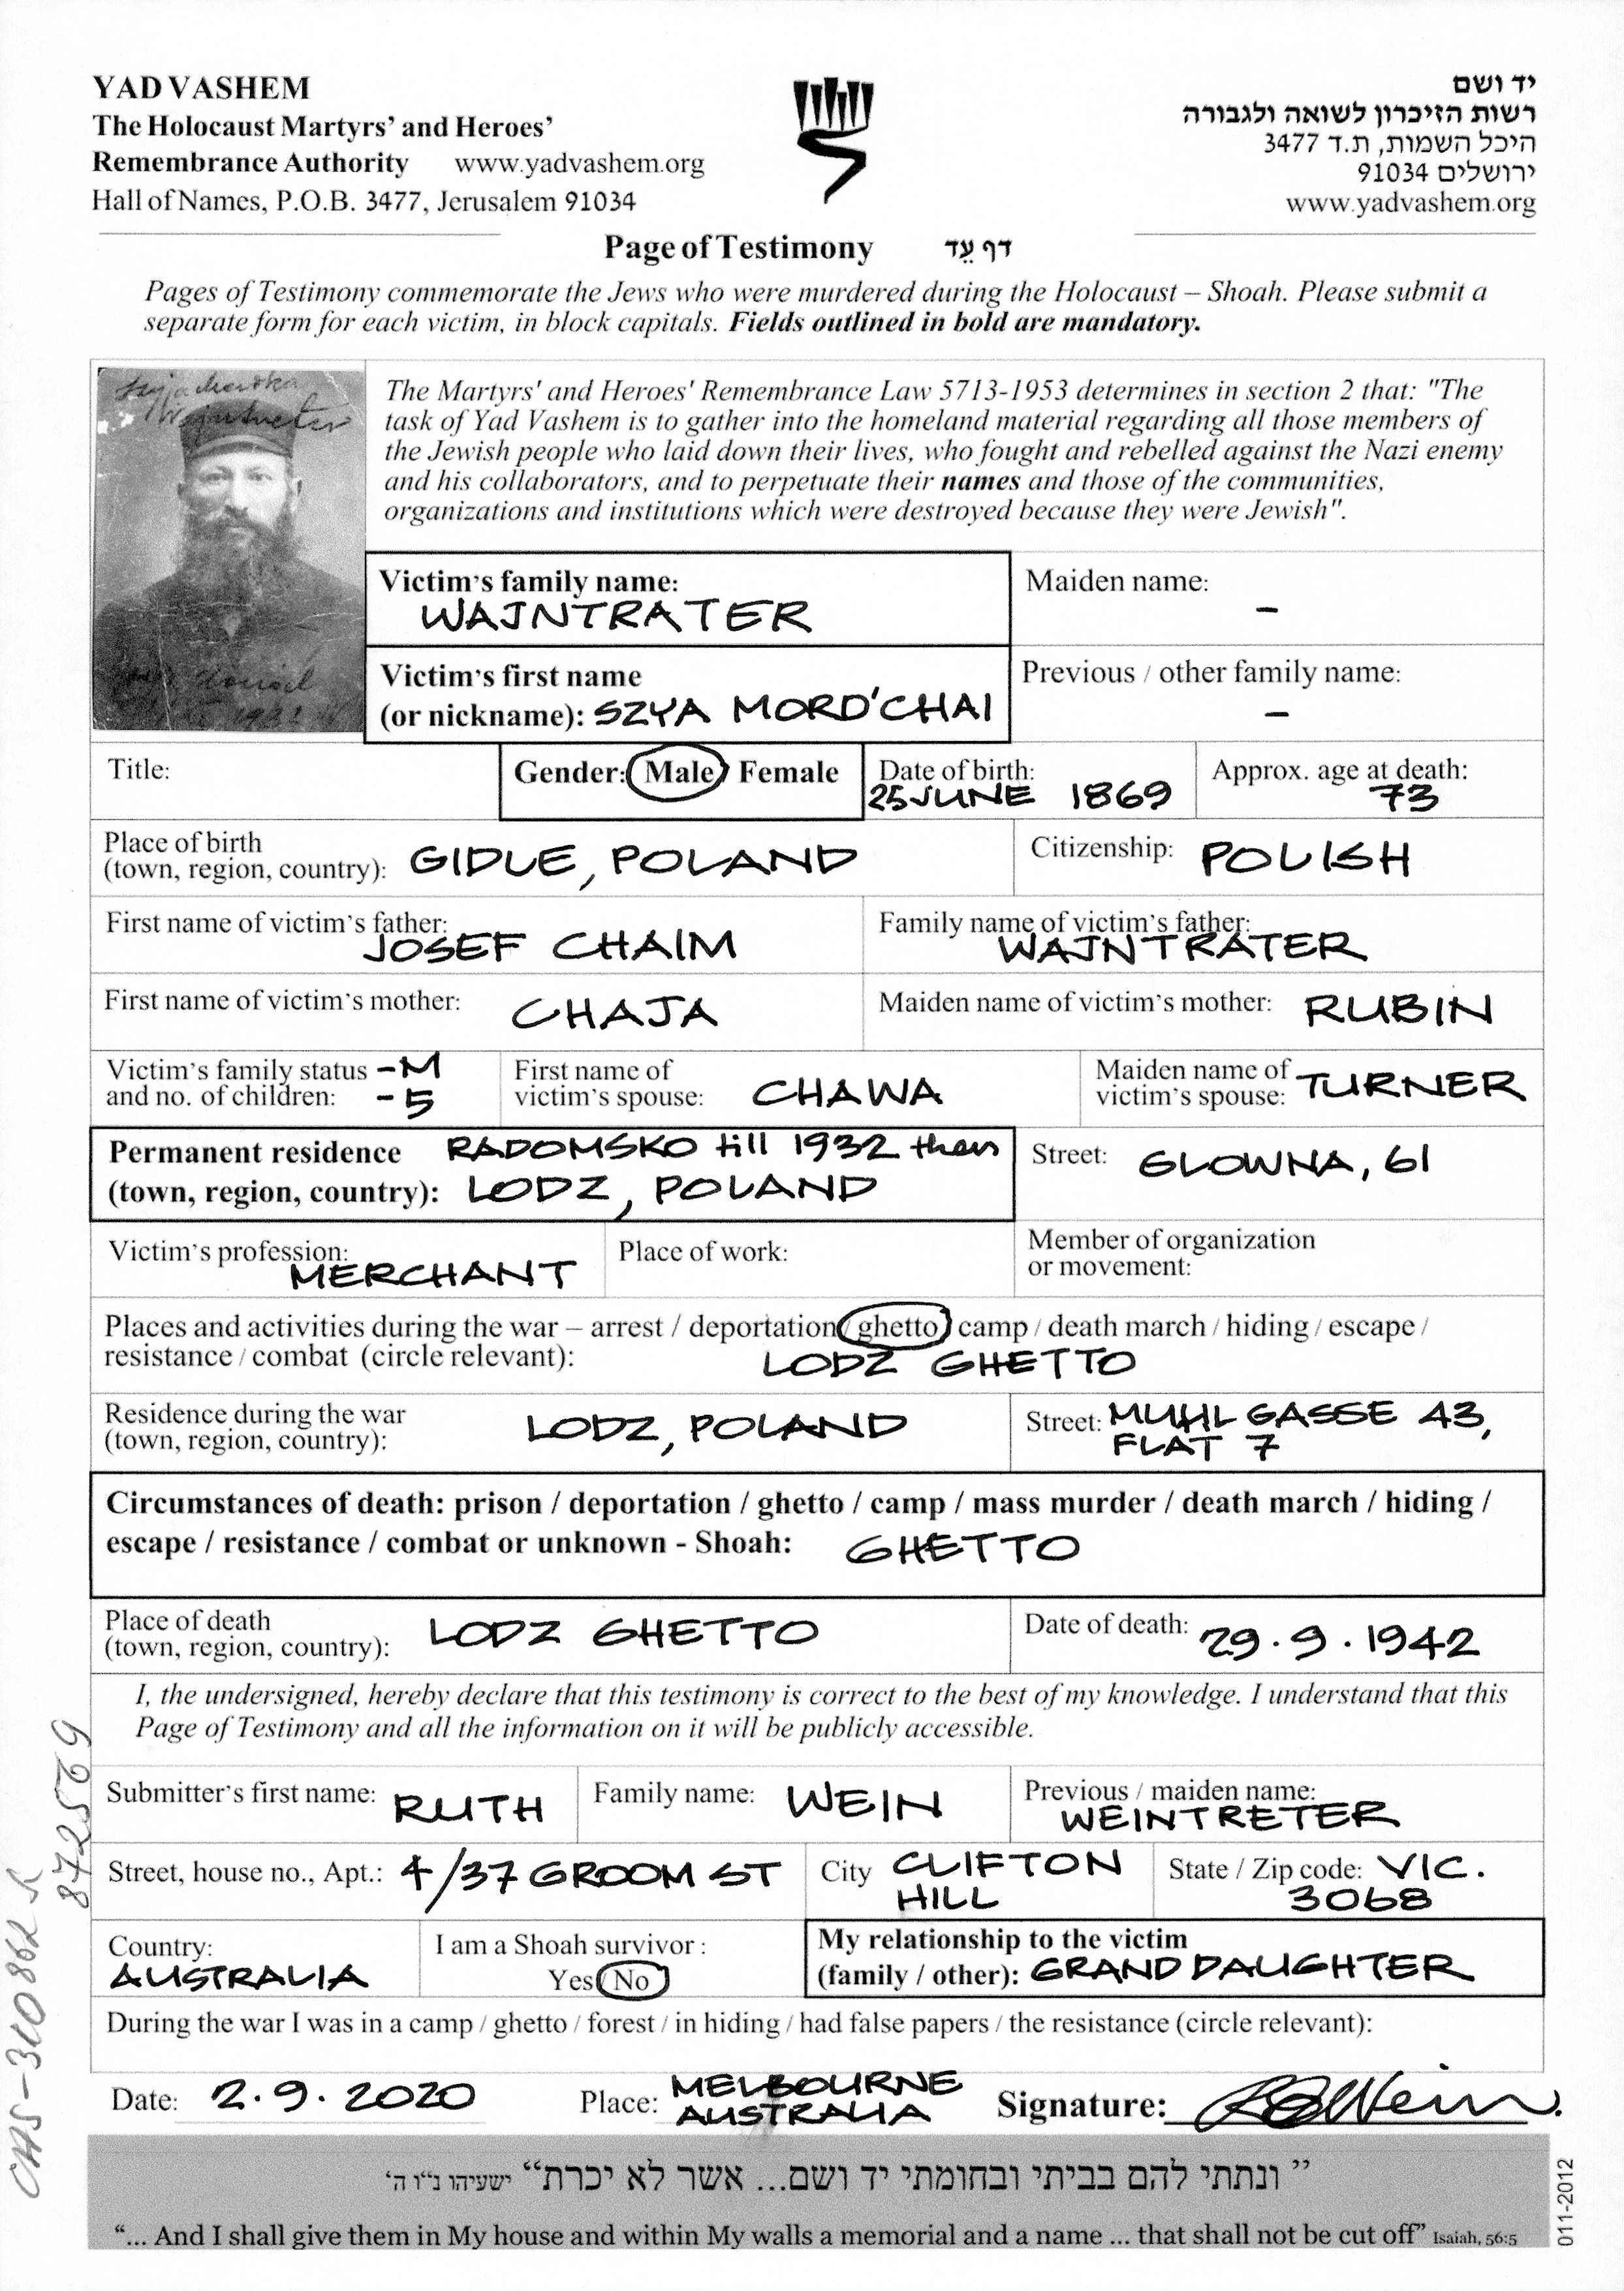 YAD VASHEM
The Holocaust Martyrs' and Heroes'
Remembrance Authority www.yadvashem.org
Hall of Names, P.O.B. 3477, Jerusalem 91034
יד ושם
רשות הזיכרון לשואה ולגבורה
היכל השמות, ת.ד 3477
ירושלים 91034
www.yadvashem.org
Page of Testimony דף עֵד
Pages of Testimony commemorate the Jews who were murdered during the Holocaust – Shoah. Please submit a
separate form for each victim, in block capitals. Fields outlined in bold are mandatory.
The Martyrs' and Heroes' Remembrance Law 5713-1953 determines in section 2 that: "The
task of Yad Vashem is to gather into the homeland material regarding all those members of
the Jewish people who laid down their lives, who fought and rebelled against the Nazi enemy
and his collaborators, and to perpetuate their names and those of the communities,
organizations and institutions which were destroyed because they were Jewish".
Victim's family name:
WAJNTRATER
Maiden name:
–
Victim's first name
(or nickname): SZYA MORD'CHAI
Previous / other family name:
–
Title:
Gender: Male / Female
Date of birth:
25 JUNE 1869
Approx. age at death:
73
Place of birth
(town, region, country): GIDLE, POLAND
Citizenship: POLISH
First name of victim's father:
JOSEF CHAIM
Family name of victim's father:
WAJNTRATER
First name of victim's mother: CHAJA
Maiden name of victim's mother: RUBIN
Victim's family status – M
and no. of children: – 5
First name of
victim's spouse: CHAWA
Maiden name of
victim's spouse: TURNER
Permanent residence RADOMSKO till 1932 then
(town, region, country): LODZ, POLAND
Street: GLOWNA, 61
Victim's profession:
MERCHANT
Place of work:
Member of organization
or movement:
Places and activities during the war – arrest / deportation / ghetto / camp / death march / hiding / escape /
resistance / combat (circle relevant): LODZ GHETTO
Residence during the war
(town, region, country): LODZ, POLAND
Street: MUHL GASSE 43,
FLAT 7
Circumstances of death: prison / deportation / ghetto / camp / mass murder / death march / hiding /
escape / resistance / combat or unknown - Shoah: GHETTO
Place of death
(town, region, country): LODZ GHETTO
Date of death: 29.9.1942
I, the undersigned, hereby declare that this testimony is correct to the best of my knowledge. I understand that this
Page of Testimony and all the information on it will be publicly accessible.
Submitter's first name: RUTH
Family name: WEIN
Previous / maiden name:
WEINTRETER
Street, house no., Apt.: 4/37 GROOM ST
City CLIFTON
HILL
State / Zip code: VIC.
3068
Country:
AUSTRALIA
I am a Shoah survivor :
Yes / No
My relationship to the victim
(family / other): GRAND DAUGHTER
During the war I was in a camp / ghetto / forest / in hiding / had false papers / the resistance (circle relevant):
Date: 2.9.2020
Place: MELBOURNE
AUSTRALIA
Signature: Wein
872569
011-2012
” ונתתי להם בביתי ובחומתי יד ושם... אשר לא יכרת“ ישעיהו נ"ו ה'
“... And I shall give them in My house and within My walls a memorial and a name ... that shall not be cut off” Isaiah, 56:5